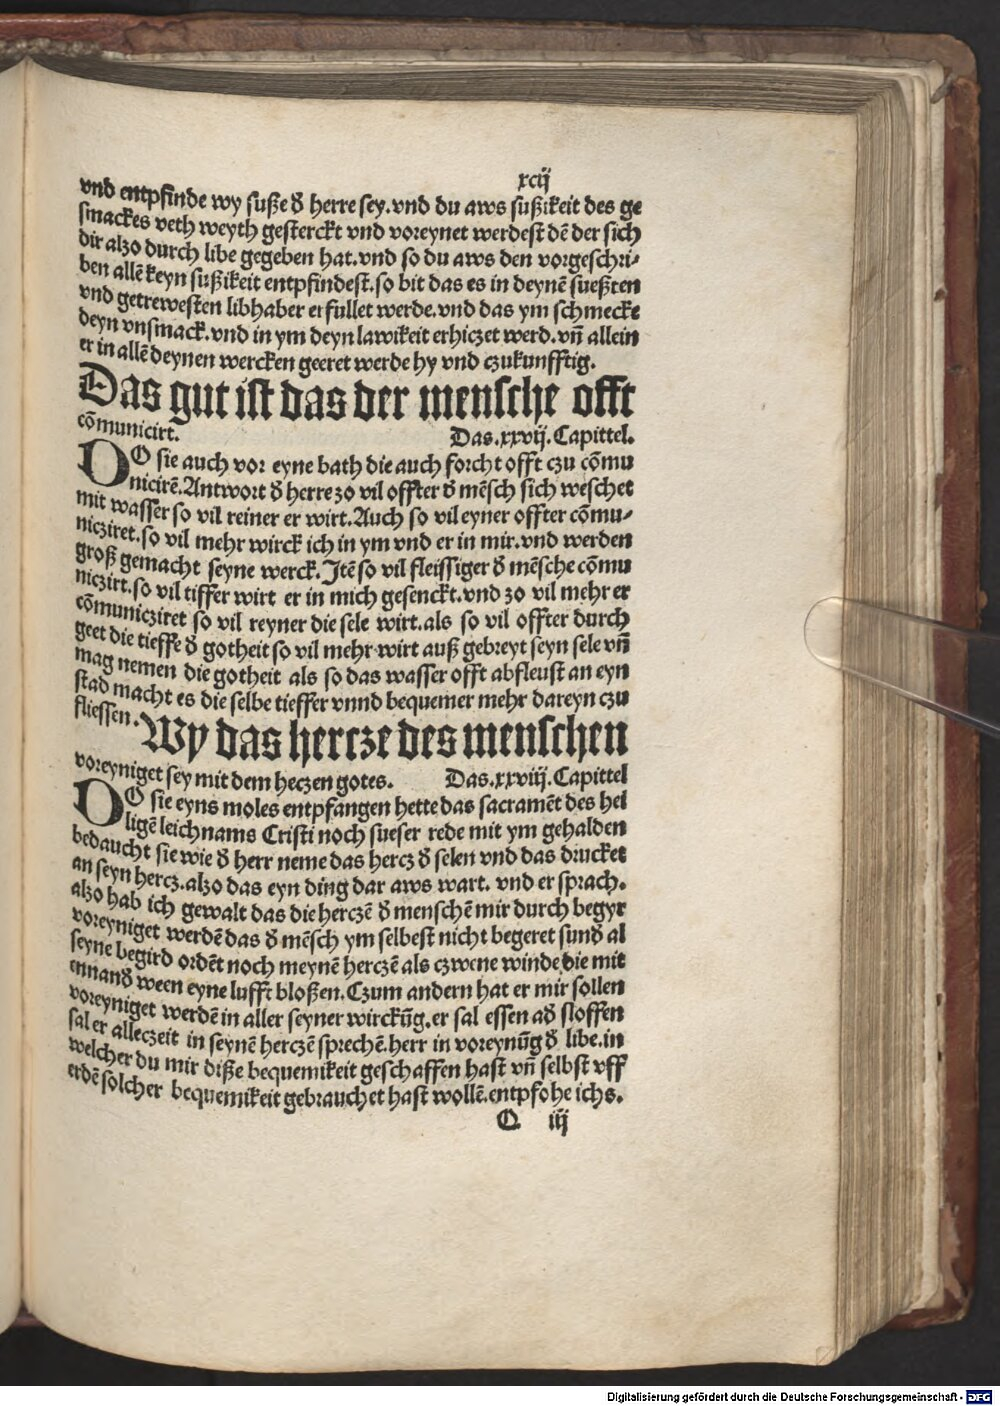 xcij
vnd entpfinde wy suße d̕ herre sey. vnd du aws sußikeit des ge
smackes veth weyth gesterckt vnd voreynet werdest dē der sich
dir alzo durch libe gegeben hat. vnd so du aws den vorgeschri⸗
ben allē keyn sußikeit entpfindest. so bit das es in deynē sueßten
vnd getrewesten libhaber erfullet werde. vnd das ym schmecke
deyn vnsmack. vnd in ym deyn lawikeit erhiczet werd. vn̄ allein
er in allē deynen wercken geeret werde hy vnd czukunfftig.
Das gut ist das der mensche offt
cōmunicirt. Das. xxvij. Capittel.
DO sie auch vor eyne bath die auch forcht offt czu cōmu
nicirē. Antwort d̕ herre zo vil offter d̕ mēsch sich weschet
mit wasser so vil reiner er wirt. Auch so vil eyner offter cōmu⸗
nicziret. so vil mehr wirck ich in ym vnd er in mir. vnd werden
groß gemacht seyne werck. Itē so vil fleissiger d̕ mēsche cōmu
niczirt. so vil tiffer wirt er in mich gesenckt. vnd zo vil mehr er
cōmunicziret so vil reyner die sele wirt. als so vil offter durch
geet die tieffe d̕ gotheit so vil mehr wirt auß gebreyt seyn sele vn̄
mag nemen die gotheit als so das wasser offt abfleust an eyn
stad macht es die selbe tieffer vnnd bequemer mehr dareyn czu
fliessen. Wy das hercze des menschen
voreyniget sey mit dem heczen gotes. Das. xxviij. Capittel
DO sie eyns moles entpfangen hette das sacramēt des hei
ligē leichnams Cristi noch sueser rede mit ym gehalden
bedaucht sie wie d̕ herr neme das hercz d̕ selen vnd das drucket
an seyn hercz. alzo das eyn ding dar aws wart. vnd er sprach.
alzo hab ich gewalt das die herczē d̕ menschē mir durch begyr
voreyniget werdē das d̕ mēsch ym selbest nicht begeret sund̕ al
seyne begird ordēt noch meynē herczē als czwene winde die mit
ennand̕ ween eyne lufft bloßen. Czum andern hat er mir sollen
voreyniget werdē in aller seyner wirckūg. er sal essen ad̕ sloffen
sal er alleczeit in seynē herczē sprechē. herr in voreynūg d̕ libe. in
welcher du mir diße bequemikeit geschaffen hast vn̄ selbst vff
erdē solcher bequemikeit gebrauchet hast wollē. entpfohe ichs.
Q iij
Digitalisierung gefördert durch die Deutsche Forschungsgemeinschaft - DFG